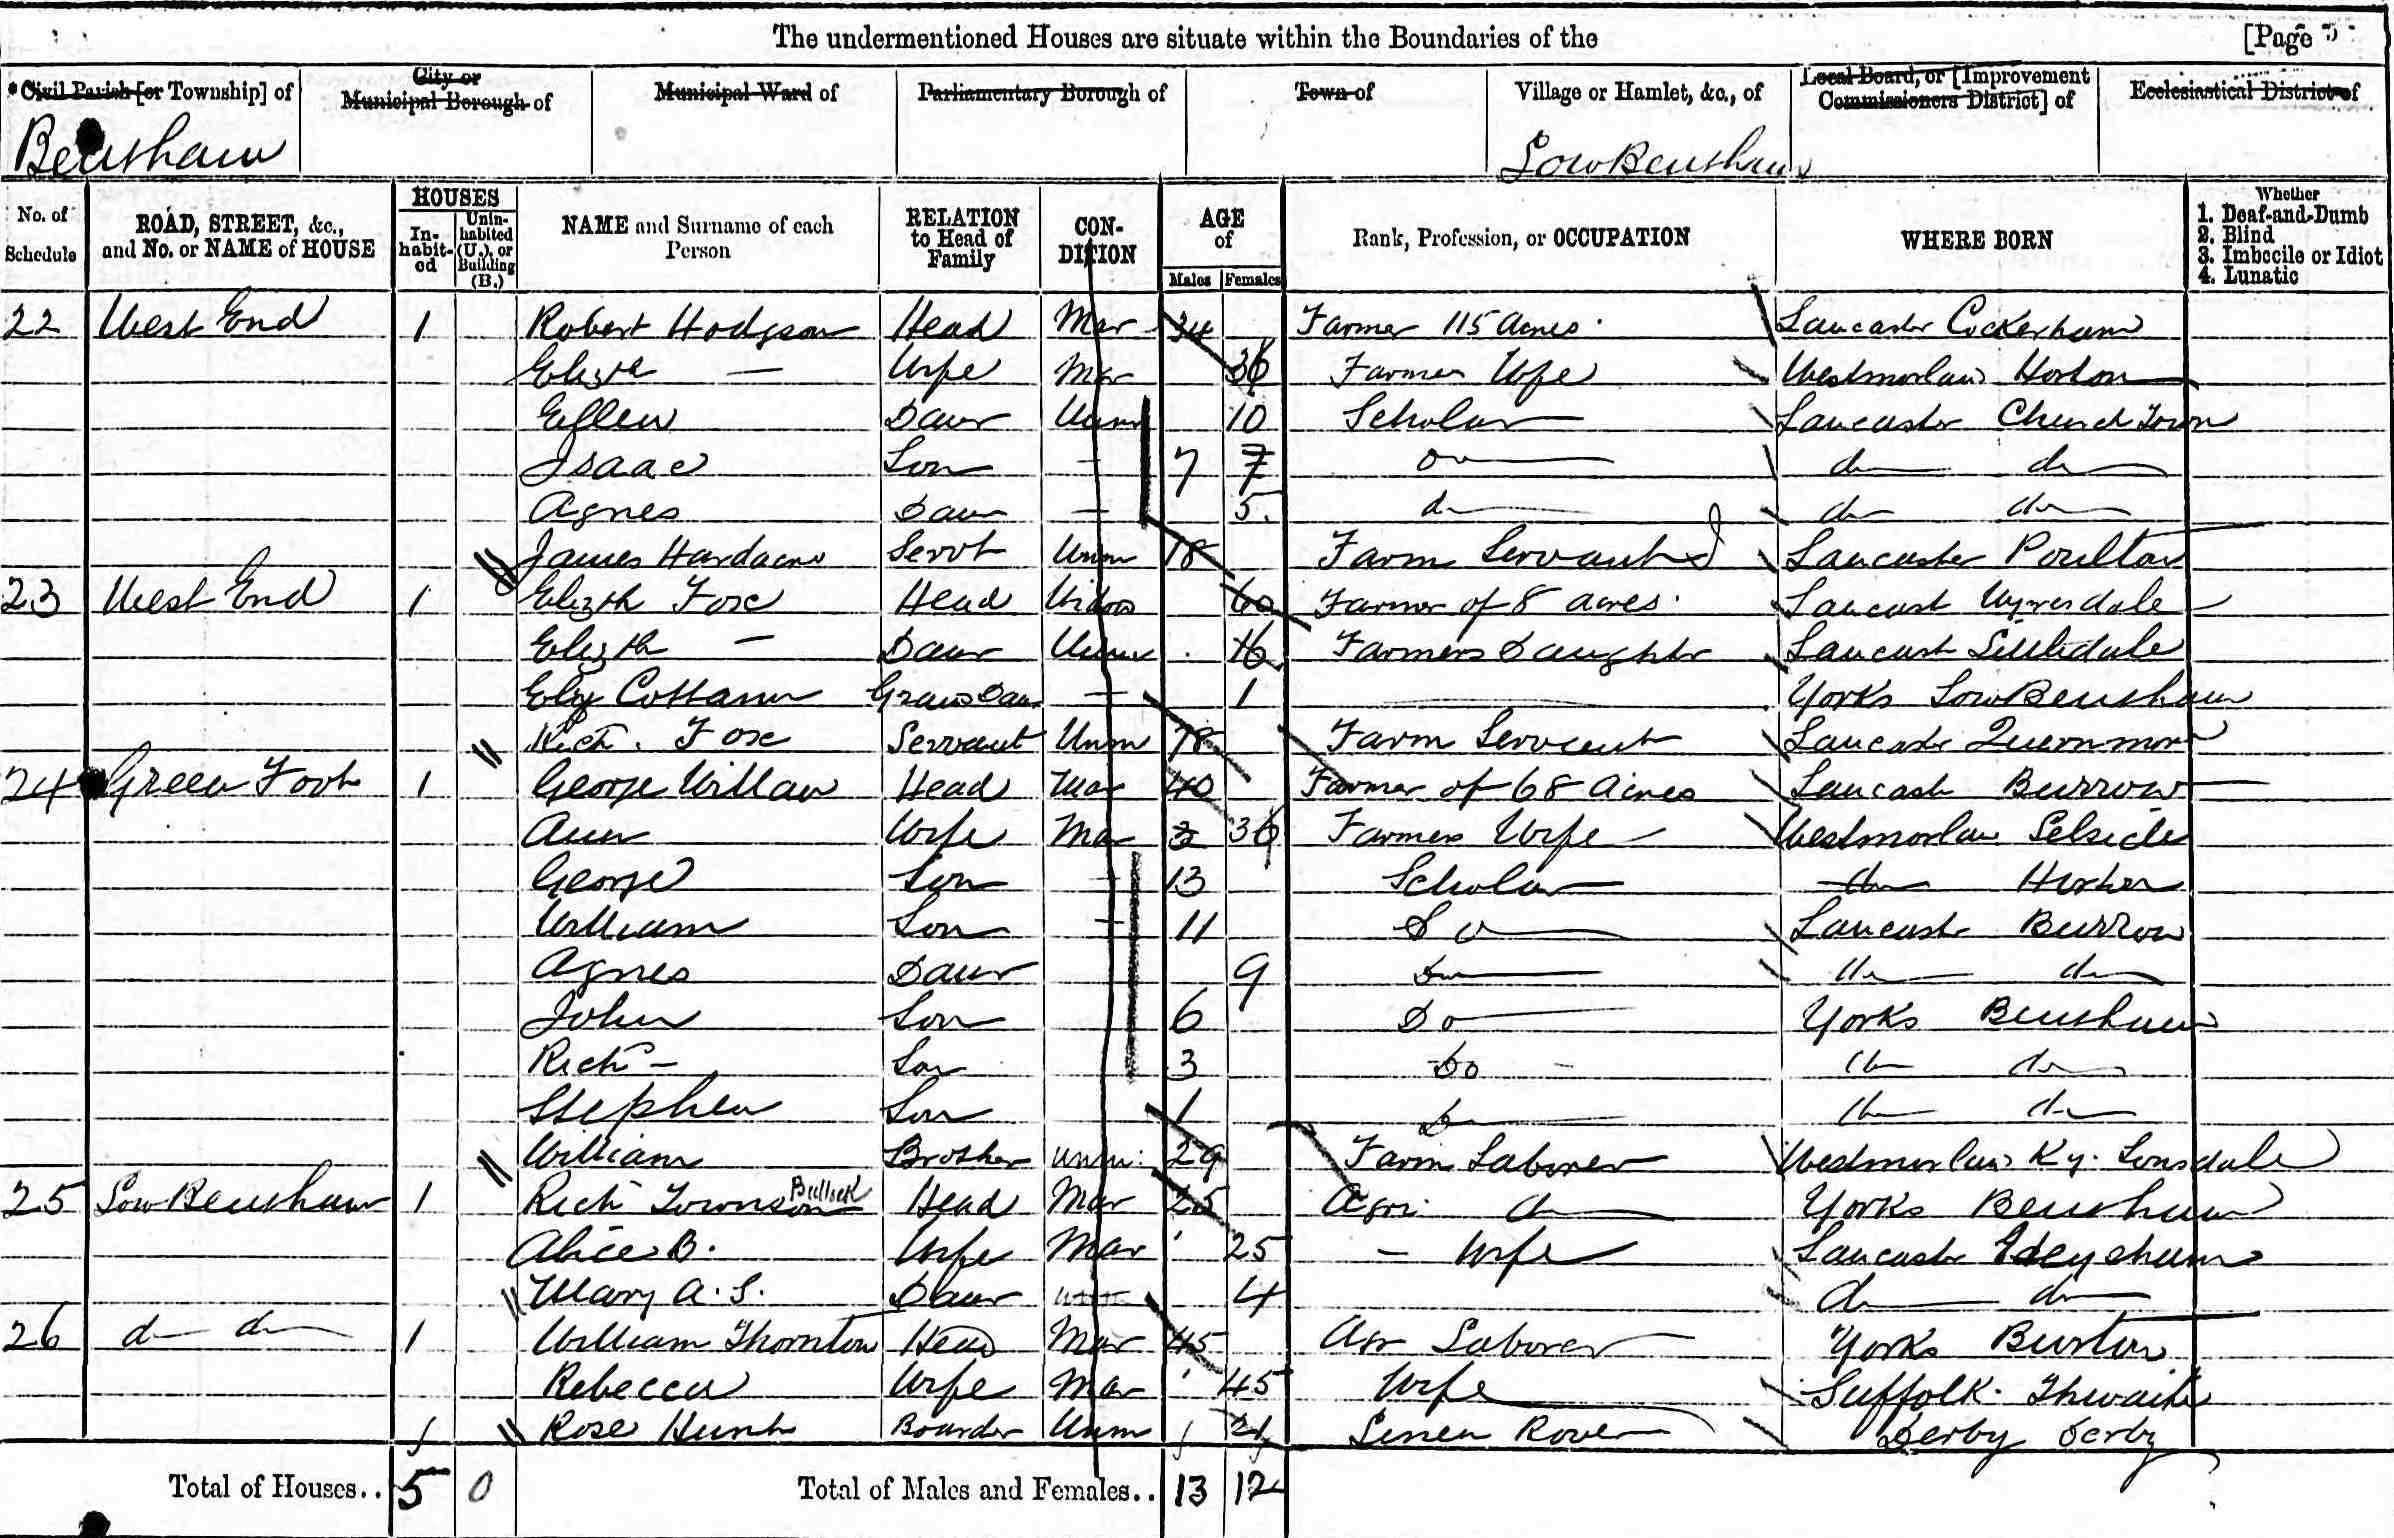 The undermentioned Houses are situate within the Boundaries of the [Page 5
*Civil Parish [or Township] of | City or Municipal Borough of | Municipal Ward of | Parliamentary Borough of | Town of | Village or Hamlet, &c., of | Local Board, or [Improvement Commissioners District] of | Ecclesiastical District of
Bentham | Low Bentham
No. of Schedule | ROAD, STREET, &c., and No. or NAME of HOUSE | HOUSES In-habit-ed | Unin-habited (U.), or Building (B.) | NAME and Surname of each Person | RELATION to Head of Family | CON-DITION | AGE of Males | Females | Rank, Profession, or OCCUPATION | WHERE BORN | Whether 1. Deaf-and-Dumb 2. Blind 3. Imbecile or Idiot 4. Lunatic
22 West End 1 Robert Hodgson Head Mar 34 Farmer 115 Acres Lancaster Cockerham
Elizth — Wife Mar 36 Farmer Wife Westmorlan Horton
Ellen Daur Unm 10 Scholar Lancaster Church Town
Isaac Son - 7 7 do do do
Agnes Daur - 5 do do do
James Hardacre Servt Unm 18 Farm Servant Lancaster Poulton
23 West End 1 Elizth Fox Head Widow 60 Farmer of 8 acres Lancast Wyresdale
Elizth — Daur Unm 16 Farmers Daughter Lancast Littledale
Eliz Cottam Grand Daur - 1 Yorks Low Bentham
Richd. Fox Servant Unm 78 Farm Servant Lancaster Quernmore
24 Green Foot 1 George Willan Head Mar 40 Farmer of 68 Acres Lancast Burrow
Ann Wife Mar 3 36 Farmers Wife Westmorlan Selside
George Son - 13 Scholar do
William Son - 11 Do Lancast Burrow
Agnes Daur 9 Do do do
John Son 6 Do Yorks Bentham
Richd — Son 3 Do do do
Stephen Son 1 Do do do
William Brother Unm 29 Farm Laborer Westmorlan Ky. Lonsdale
25 Low Bentham 1 Richd Townson Bullock Head Mar 25 Agri do Yorks Bentham
Alice B. Wife Mar 25 - Wife Lancaster Heysham
Mary A. S. Daur Unm 4 do do
26 do do 1 William Thornton Head Mar 45 Agr Laborer Yorks Burton
Rebecca Wife Mar 45 Wife Suffolk Thwaite
Rose Hunt Boarder Unm 21 Linen Rover Derby Derby
Total of Houses.. 5 0 Total of Males and Females.. 13 12